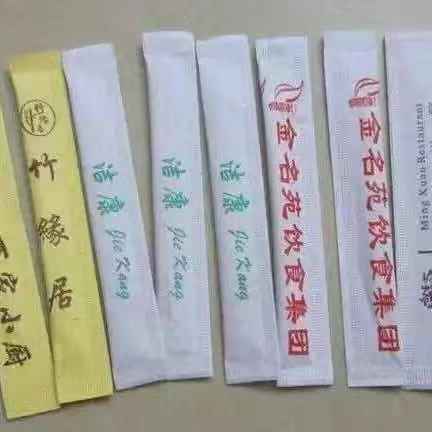 小厨
竹緣居
洁康 Jie Kang
洁康 Jie Kang
洁康 Jie Kang
金名苑饮食集团
金名苑饮食集团
Ming Xuan Restaurant